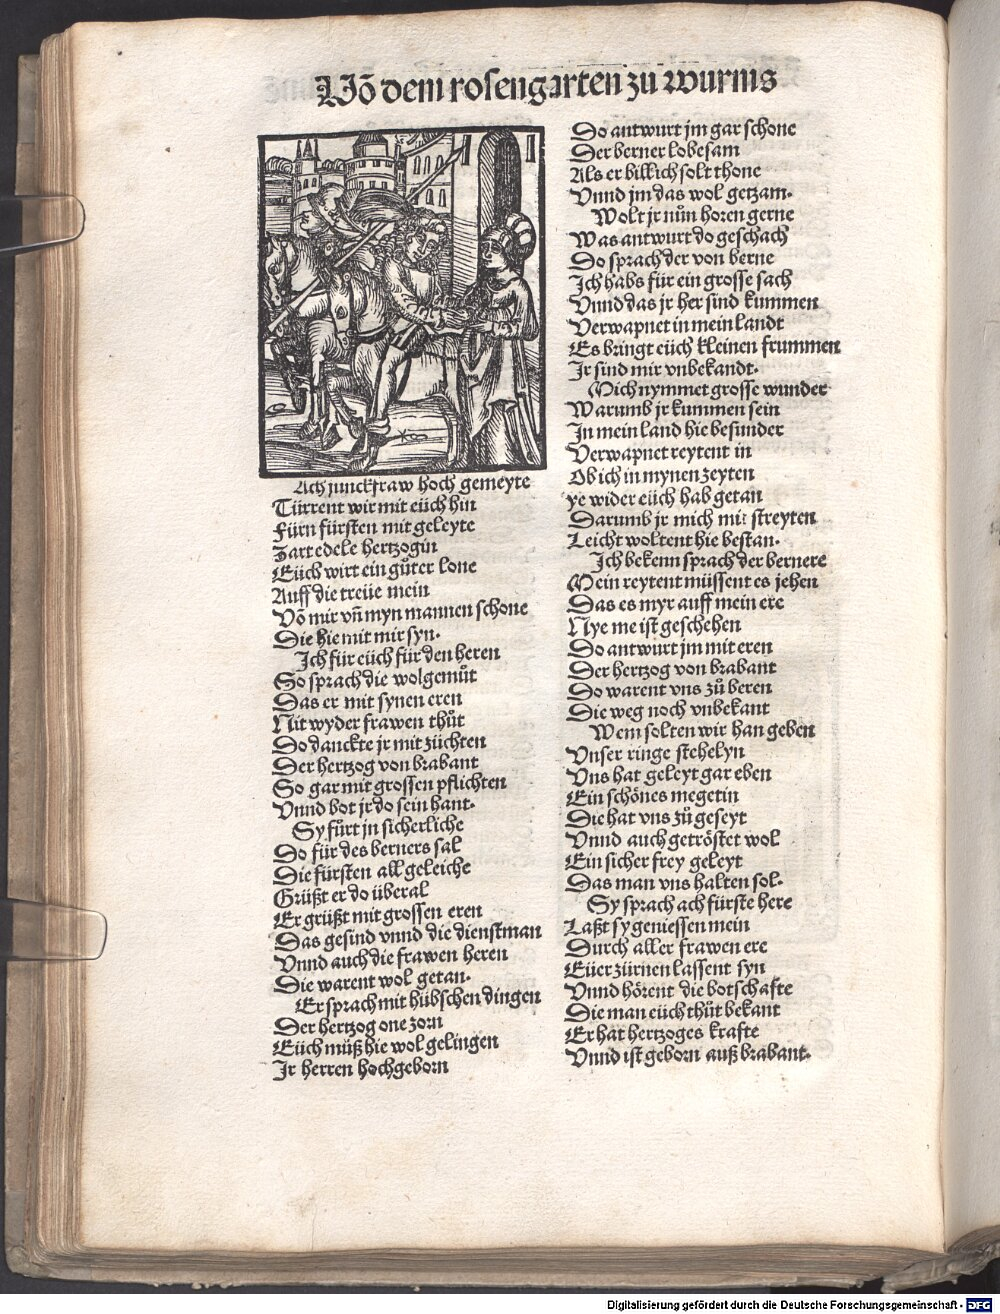 Võ dem rosengarten zu wurms
Ach junckfraw hoch gemeyte
Türrent wir mit eüch hin
Fürn fürsten mit geleyte
Zart edele hertzogin
Eüch wirt ein gůter lone
Auff die treüe mein
Võ mir vñ myn mannen schone
Die hie mit mir syn.
Ich für eüch für den heren
So sprach die wolgemůt
Das er mit synen eren
Nit wyder frawen thůt
Do danckte jr mit züchten
Der hertzog von brabant
So gar mit grossen pflichten
Vnnd bot jr do sein hant.
Sy fůrt jn sicherliche
Do für des berners sal
Die fürsten all geleiche
Grüßt er do überal
Er grüßt mit grossen eren
Das gesind vnnd die dienstman
Vnnd auch die frawen heren
Die warent wol getan.
Er sprach mit hübschen dingen
Der hertzog one zorn
Eüch müß hie wol gelingen
Jr herren hochgeborn
Do antwurt jm gar schone
Der berner lobesam
Als er billich solt thone
Vnnd jm das wol getzam.
Wolt jr nůn horen gerne
Was antwurt do geschach
Do sprach der von berne
Ich habs für ein grosse sach
Vnnd das jr her sind kummen
Verwapnet in mein landt
Es bringt eüch kleinen frummen
Jr sind mir vnbekandt.
Mich nymmet grosse wunder
Warumb jr kummen sein
In mein land hie besunder
Verwapnet reytent in
Ob ich in mynen zeyten
ye wider eüch hab getan
Darumb jr mich mit streyten
Leicht woltent hie bestan.
Ich bekenn sprach der bernere
Mein reytent müssent es jehen
Das es myr auff mein ere
Nye me ist geschehen
Do antwurt jm mit eren
Der hertzog von brabant
Do warent vns zů beren
Die weg noch vnbekant
Wem solten wir han geben
Vnser ringe stehelyn
Vns hat geleyt gar eben
Ein schönes megetin
Die hat vns zů geseyt
Vnnd auch getröstet wol
Ein sicher frey geleyt
Das man vns halten sol.
Sy sprach ach fürste here
Laßt sy geniessen mein
Durch aller frawen ere
Eüer zürnen lassent syn
Vnnd hörent die botschafte
Die man eüch thůt bekant
Er hat hertzoges krafte
Vnnd ist geborn auß brabant.
Digitalisierung gefördert durch die Deutsche Forschungsgemeinschaft - DFG